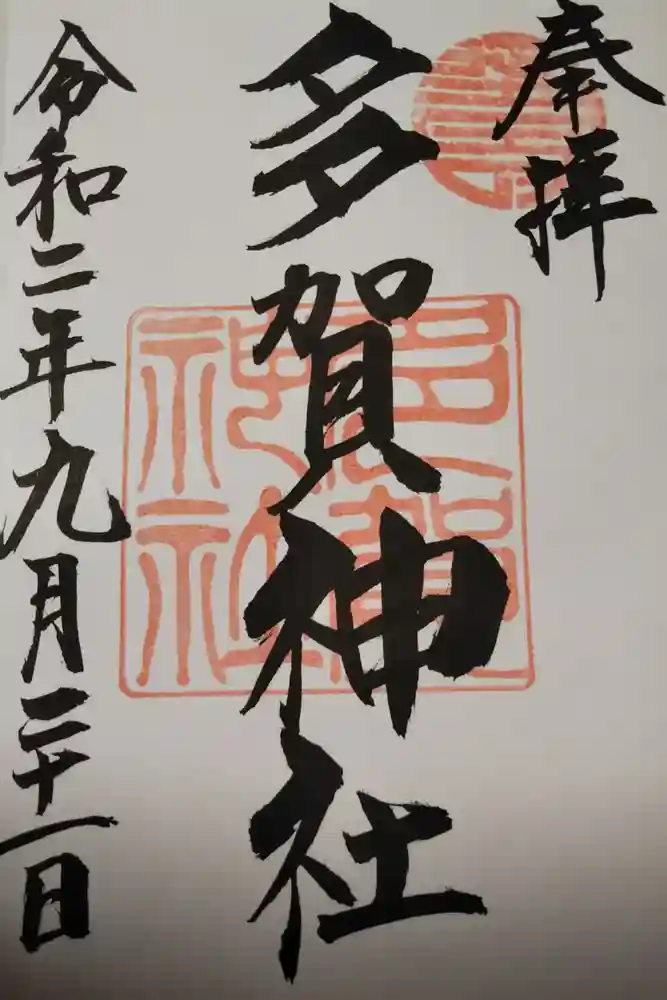 奉拝
多賀神社
令和二年九月二十一日
多賀
神社